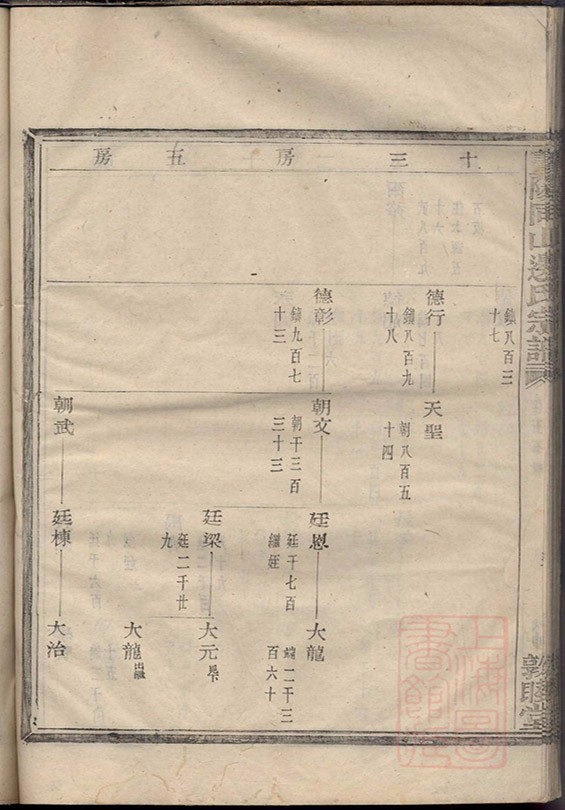 十三房五房
鎮八百三
十七
德行
天聖
鎮八百九
十八
朝八百五
十四
德彰
朝文
廷恩
大龍
鎮九百七
十三
朝千三百
三十三
廷千七百
繼姪
端二千三
百六十
廷梁
大元
廷二千廿
九
大龍出繼
朝武
廷棟
大治
山邊氏宗譜
敦睦堂